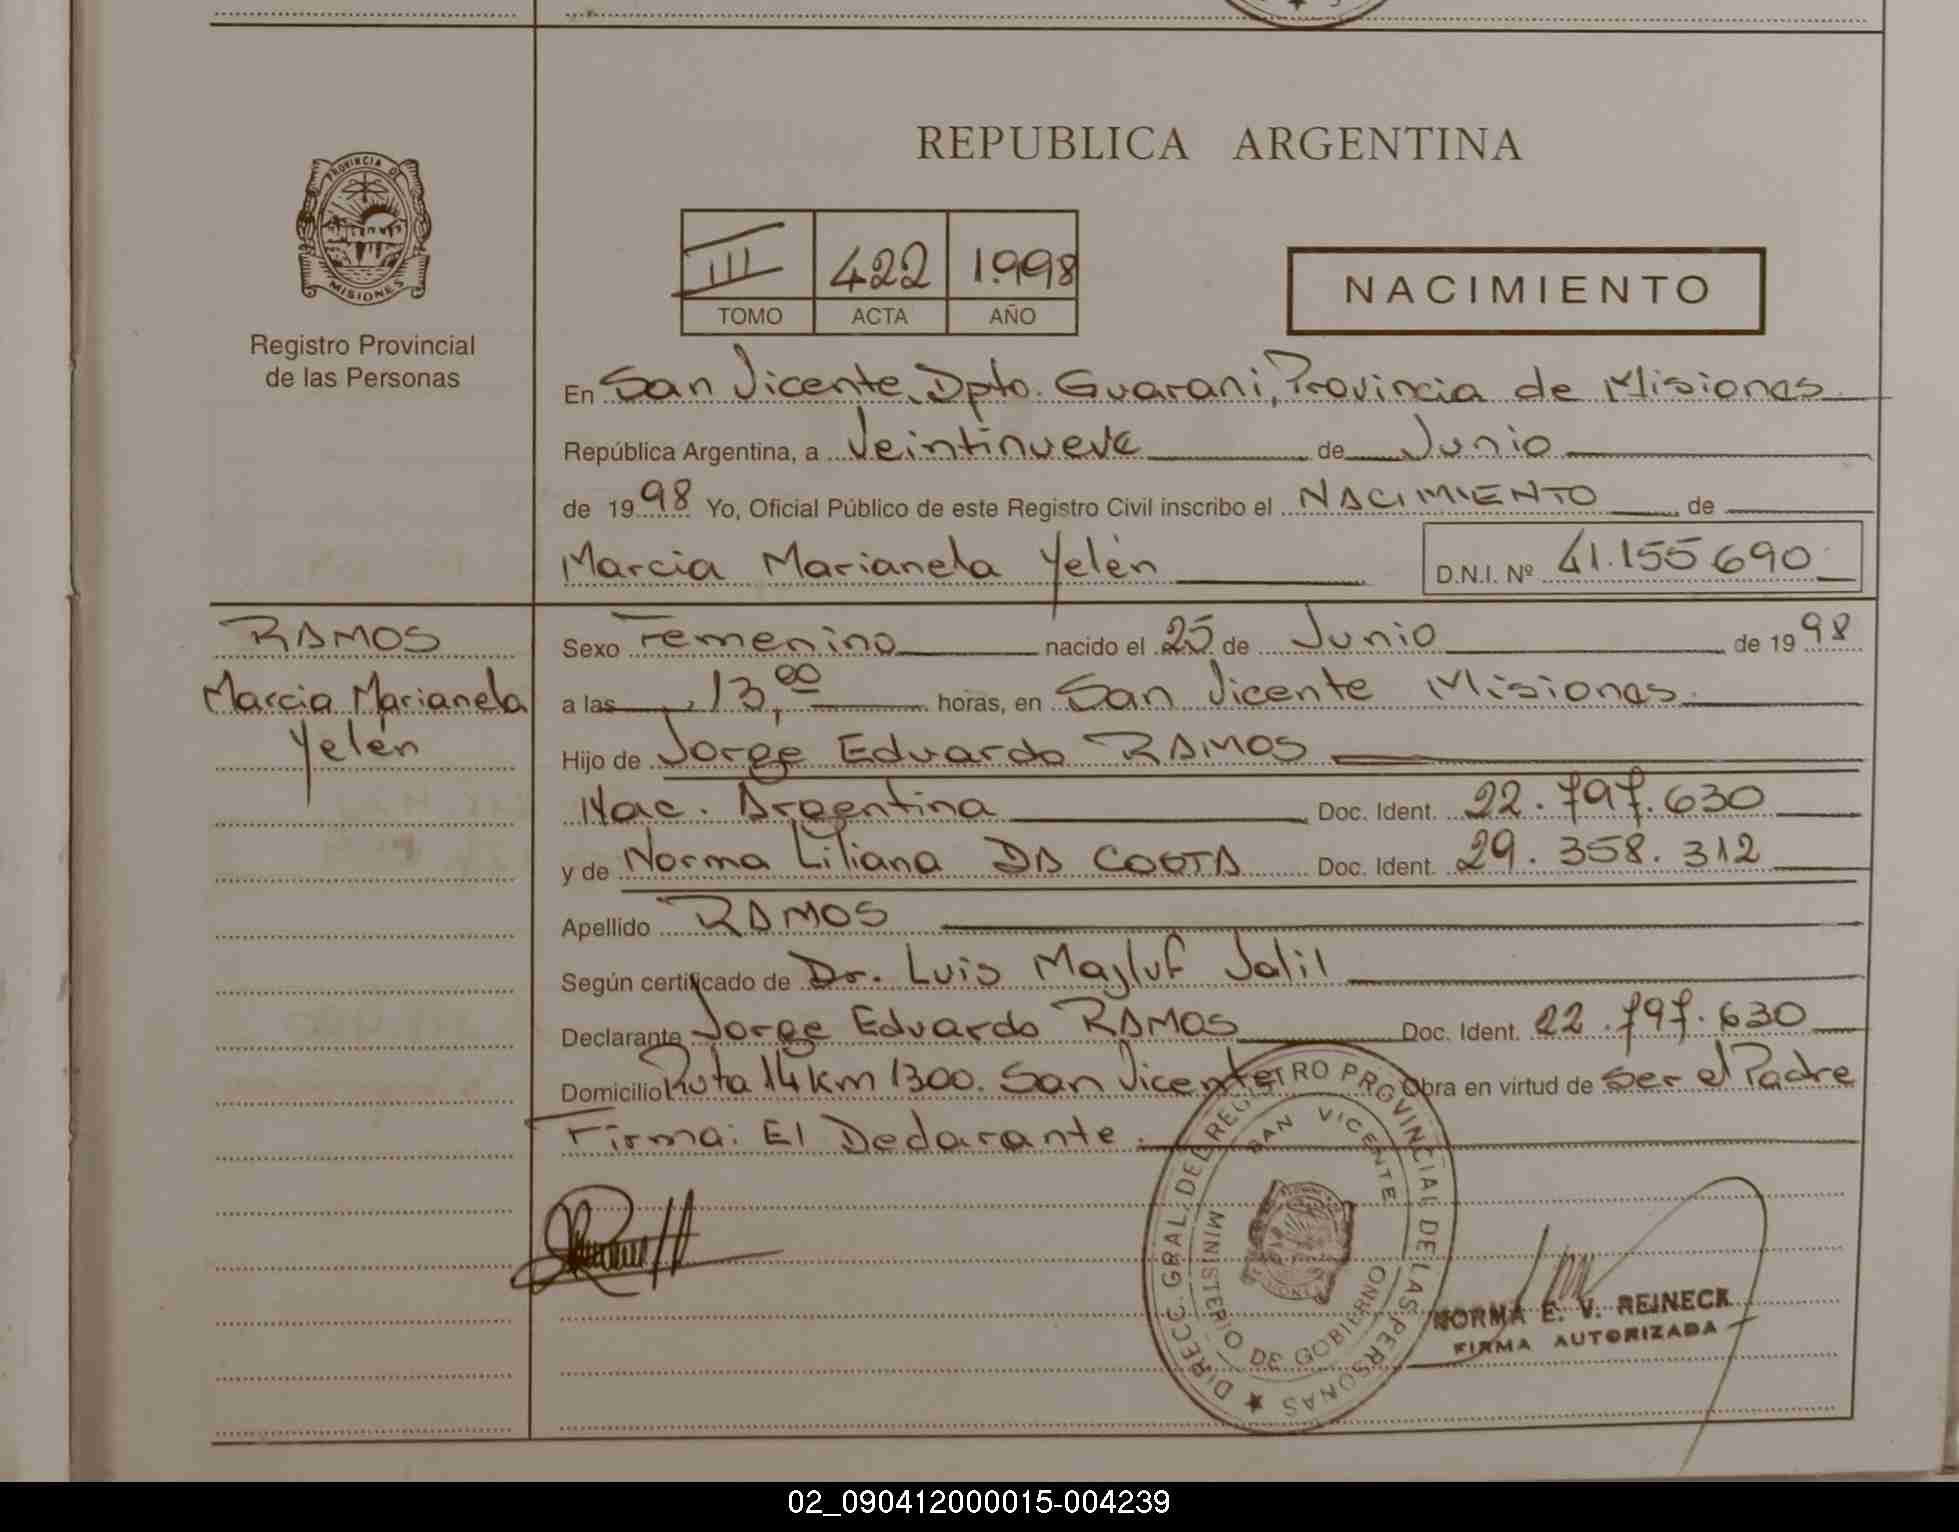 PROVINCIA DE
MISIONES
Registro Provincial
de las Personas
REPUBLICA ARGENTINA
III 422 1.998
TOMO ACTA AÑO
NACIMIENTO
En San Vicente, Dpto. Guarani, Provincia de Misiones
República Argentina, a Veintinueve de Junio
de 19 98 Yo, Oficial Público de este Registro Civil inscribo el NACIMIENTO de
Marcia Marianela Yelén D.N.I. Nº 41.155.690
RAMOS
Marcia Marianela
Yelén
Sexo Femenino nacido el 25 de Junio de 19 98
a las 13,00 horas, en San Vicente Misiones
Hijo de Jorge Eduardo RAMOS
Nac. Argentina Doc. Ident. 22.797.630
y de Norma Liliana DA COSTA Doc. Ident. 29.358.312
Apellido RAMOS
Según certificado de Dr. Luis Majluf Jalil
Declarante Jorge Eduardo RAMOS Doc. Ident. 22.797.630
Domicilio Ruta 14 km 1300. San Vicente Obra en virtud de ser el Padre
Firma: El Declarante.
DIRECC. GRAL. DEL REGISTRO PROVINCIAL DE LAS PERSONAS
SAN VICENTE
MINISTERIO DE GOBIERNO
NORMA E. V. REINECK
FIRMA AUTORIZADA
02_090412000015-004239